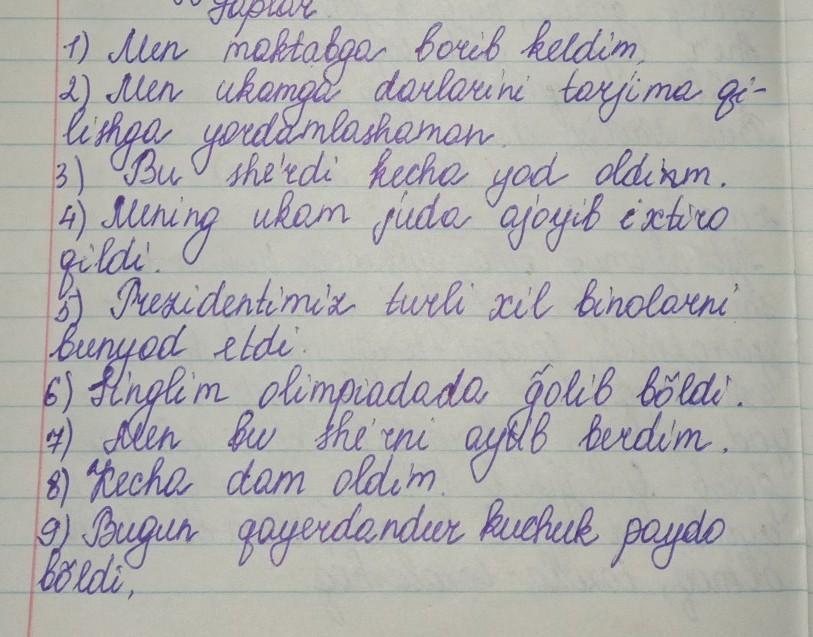 Gaplar
1) Men maktabga borib keldim.
2) Men ukamga darlarini tarjima qi-
lishga yordamlashaman.
3) Bu she'rdi kecha yod oldim.
4) Mening ukam juda ajoyib ixtiro
qildi.
5) Prezidentimiz turli xil binolarni
bunyod etdi.
6) Singlim olimpiadada g̃olib bõldi.
7) Men bu she'rni aytib berdim.
8) Kecha dam oldim.
9) Bugun qayerdandur kuchuk paydo
bõldi.